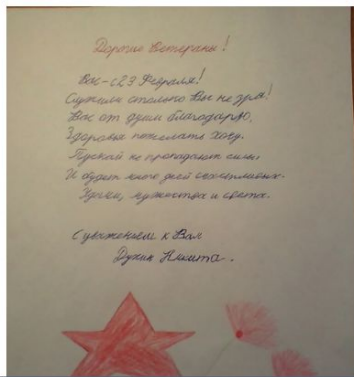 Дорогие Ветераны!
Вас - с 23 Февраля!
Служили столько Вы не зря!
Вас от души благодарю,
Здоровья пожелать хочу.
Пускай не пропадают силы,
И будет много дней счастливых.
Удачи, мужества и света.
С уважением к Вам
Духин Никита.